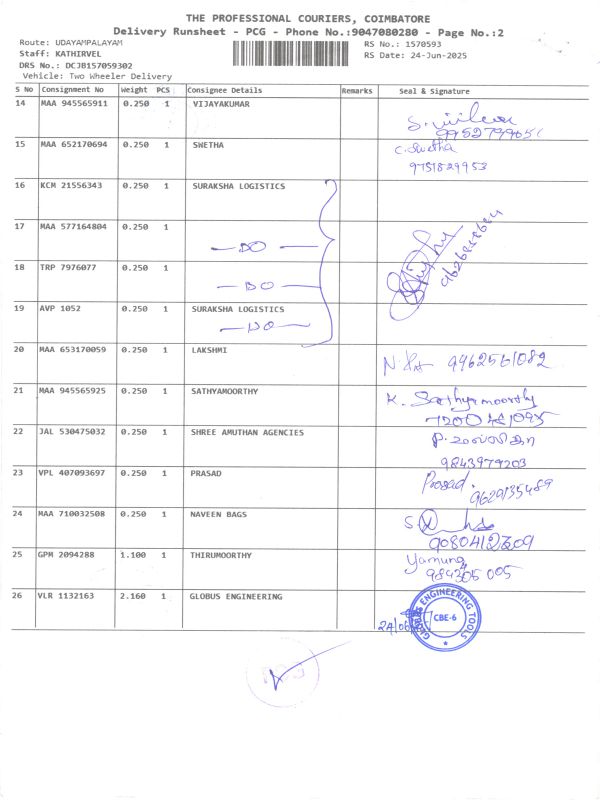 THE PROFESSIONAL COURIERS, COIMBATORE
Delivery Runsheet - PCG - Phone No.:9047080280 - Page No.:2
Route: UDAYAMPALAYAM
Staff: KATHIRVEL
DRS No.: DCJB157059302
Vehicle: Two Wheeler Delivery
RS No.: 1570593
RS Date: 24-Jun-2025
S No Consignment No Weight PCS Consignee Details Remarks Seal & Signature
14 MAA 945565911 0.250 1 VIJAYAKUMAR
15 MAA 652170694 0.250 1 SWETHA C. Swetha
9751829953
16 KCM 21556343 0.250 1 SURAKSHA LOGISTICS
17 MAA 577164804 0.250 1
— DO —
18 TRP 7976077 0.250 1
— DO —
19 AVP 1052 0.250 1 SURAKSHA LOGISTICS
— DO —
20 MAA 653170059 0.250 1 LAKSHMI 9962561082
21 MAA 945565925 0.250 1 SATHYAMOORTHY K. Sathyamoorthy
22 JAL 530475032 0.250 1 SHREE AMUTHAN AGENCIES
9843979203
23 VPL 407093697 0.250 1 PRASAD Prasad.
9629135489
24 MAA 710032508 0.250 1 NAVEEN BAGS
25 GPM 2094288 1.100 1 THIRUMOORTHY Yamuna
984305 005
26 VLR 1132163 2.160 1 GLOBUS ENGINEERING
GLOBUS ENGINEERING TOOLS
CBE-6
24/06